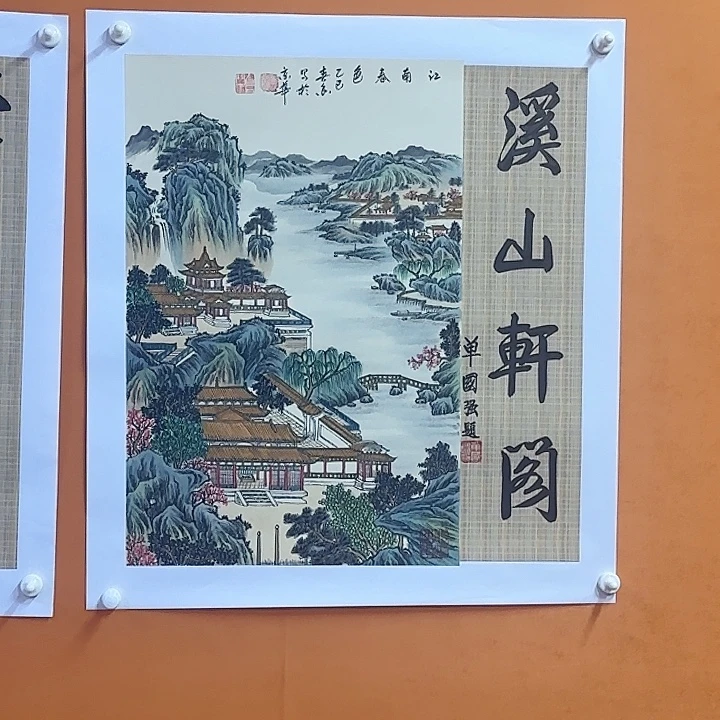 溪山軒閣
单國强題
江南春色
乙巳
春玉
写於
京華